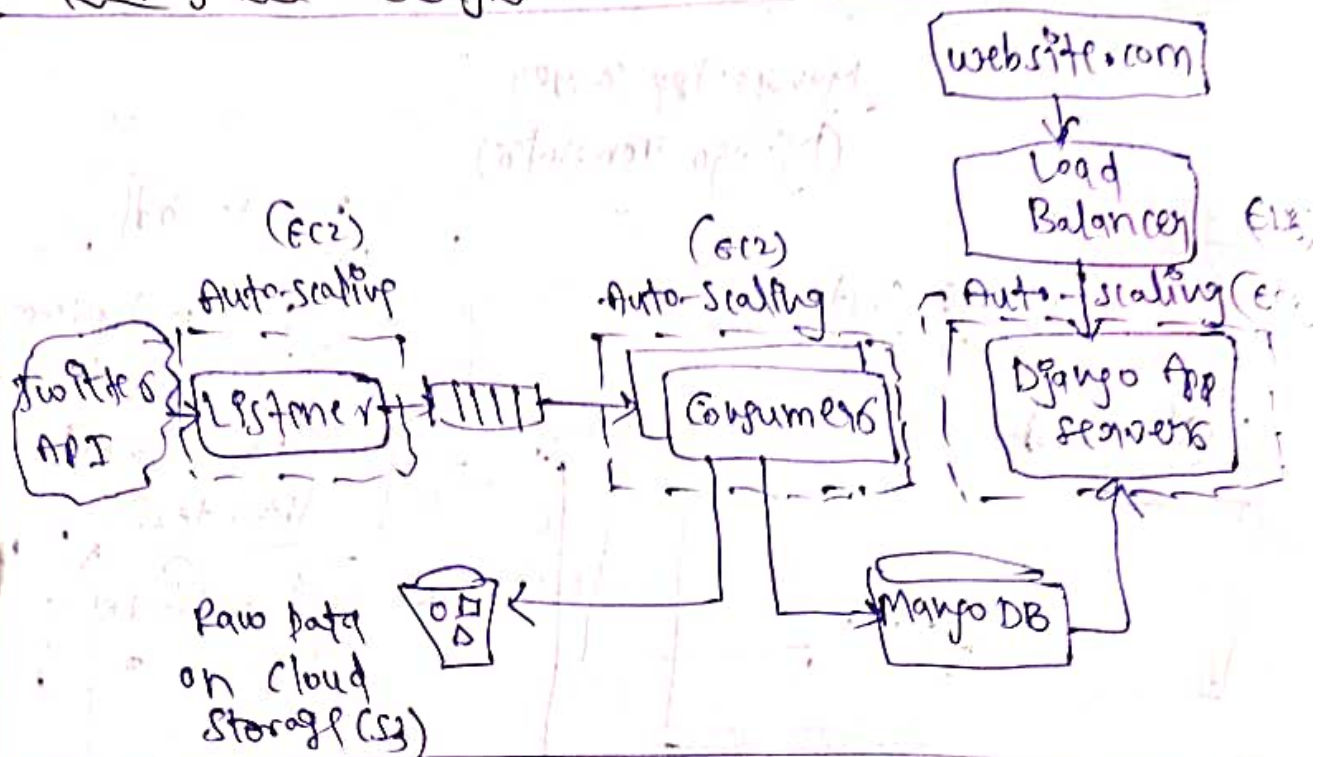 website.com
Load
Balancer
(EC2)
Auto-scaling
(EC2)
Auto-Scaling
Auto-scaling
Twitter
API
Listner
Consumers
Django App
servers
Raw Data
on Cloud
Storage (S3)
MangoDB